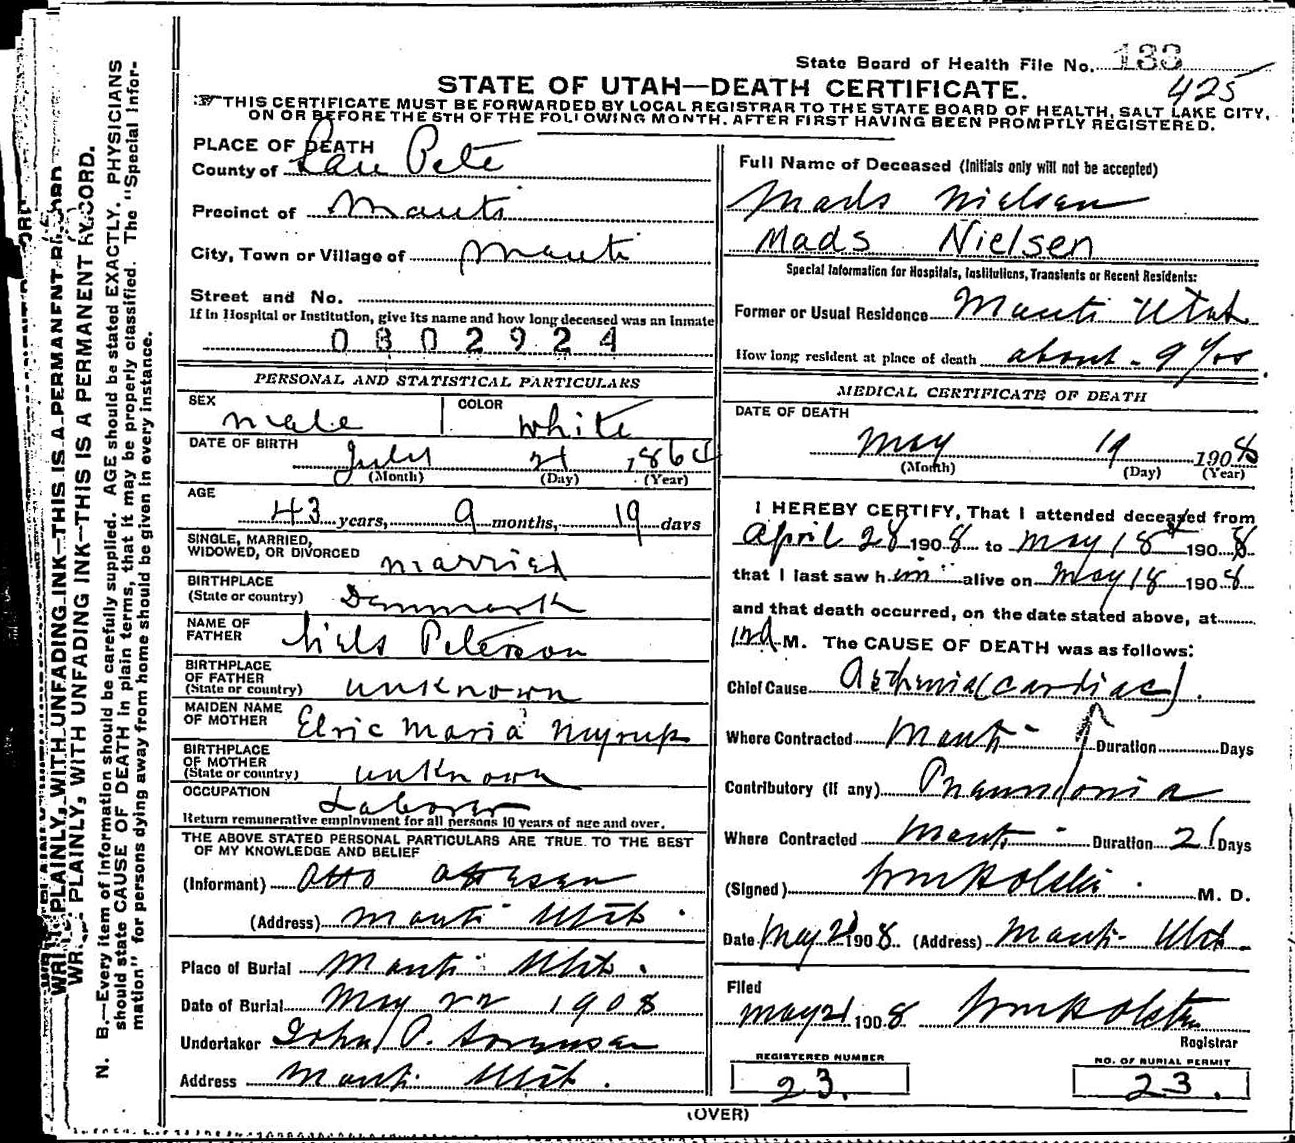 State Board of Health File No. 133
425
STATE OF UTAH—DEATH CERTIFICATE.
THIS CERTIFICATE MUST BE FORWARDED BY LOCAL REGISTRAR TO THE STATE BOARD OF HEALTH, SALT LAKE CITY,
ON OR BEFORE THE 5TH OF THE FOLLOWING MONTH, AFTER FIRST HAVING BEEN PROMPTLY REGISTERED.
WRITE PLAINLY, WITH UNFADING INK—THIS IS A PERMANENT RECORD
WRITE PLAINLY, WITH UNFADING INK—THIS IS A PERMANENT RECORD.
N. B.—Every item of information should be carefully supplied. AGE should be stated EXACTLY. PHYSICIANS
should state CAUSE OF DEATH in plain terms, that it may be properly classified. The "Special Infor-
mation" for persons dying away from home should be given in every instance.
PLACE OF DEATH
County of San Pete
Precinct of Manti
City, Town or Village of Manti
Street and No.
If in Hospital or Institution, give its name and how long deceased was an Inmate
0802924
PERSONAL AND STATISTICAL PARTICULARS
SEX male COLOR white
DATE OF BIRTH July 21 1864
(Month) (Day) (Year)
AGE 43 years, 9 months, 19 days
SINGLE, MARRIED,
WIDOWED, OR DIVORCED married
BIRTHPLACE
(State or country) Denmark
NAME OF
FATHER Niels Peterson
BIRTHPLACE
OF FATHER
(State or country) unknown
MAIDEN NAME
OF MOTHER Elsie Maria Nyrup
BIRTHPLACE
OF MOTHER
(State or country) unknown
OCCUPATION Laborer
Return remunerative employment for all persons 10 years of age and over.
THE ABOVE STATED PERSONAL PARTICULARS ARE TRUE TO THE BEST
OF MY KNOWLEDGE AND BELIEF
(Informant) Otto
(Address) Manti Utah.
Place of Burial Manti Utah.
Date of Burial May 22 1908
Undertaker John P. Sorensen
Address Manti Utah.
Full Name of Deceased (Initials only will not be accepted)
Mads Nielsen
Mads Nielsen
Special Information for Hospitals, Institutions, Transients or Recent Residents:
Former or Usual Residence Manti Utah
How long resident at place of death about 9 Yrs.
MEDICAL CERTIFICATE OF DEATH
DATE OF DEATH
May 19 1908
(Month) (Day) (Year)
I HEREBY CERTIFY, That I attended deceased from
April 28 1908 to May 18 1908
that I last saw him alive on May 18 1908
and that death occurred, on the date stated above, at
M. The CAUSE OF DEATH was as follows:
Chief Cause Asthenia (cardiac).
Where Contracted Manti Duration Days
Contributory (if any) Pneumonia
Where Contracted Manti Duration 21 Days
(Signed) M. D.
Date May 21 1908 (Address) Manti Utah
Filed
May 21 1908
Registrar
REGISTERED NUMBER
23.
NO. OF BURIAL PERMIT
23.
(OVER)